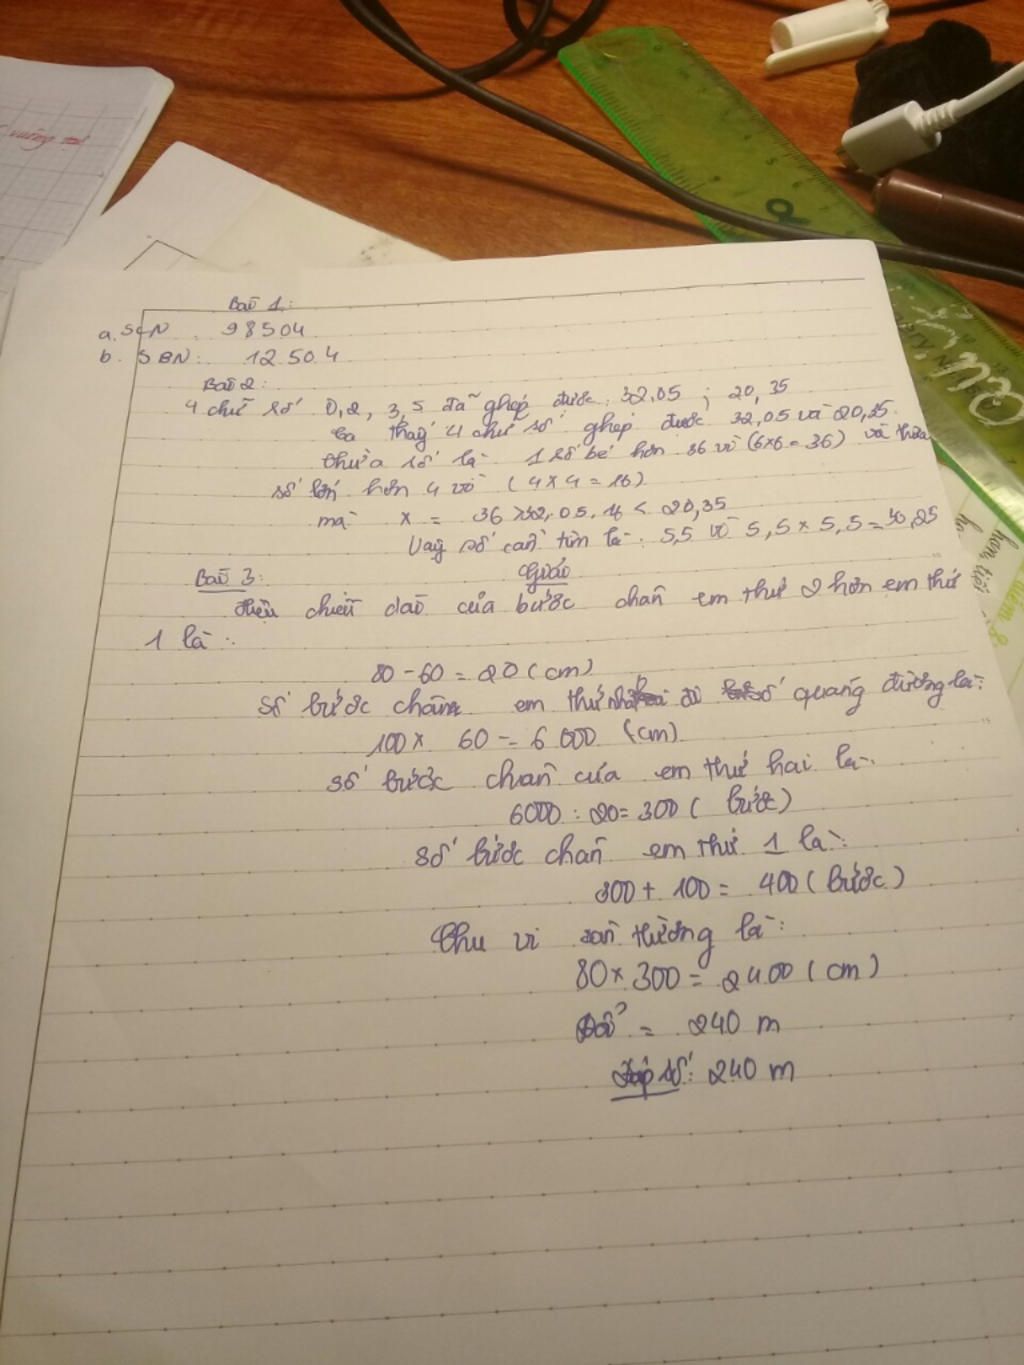 vuông
Bài 1:
a. SLN : 98504
b. SBN: 12504
Bài 2:
4 chữ số 0,2, 3,5 đã ghép được: 32,05 ; 20,35
Ta thấy 4 chữ số ghép được 32,05 và 20,35
thừa số là 1 số bé hơn 36 vì (6x6 = 36) và thừa
số lớn hơn 4 vì (4 x 4 = 16)
mà x = 36 > 32,05. 16 < 20,35
Vậy số cần tìm là: 5,5 vì 5,5 x 5,5 = 30,25
Bài 3: Giải
Hiệu chiều dài của bước chân em thứ 2 hơn em thứ
1 là :
80 - 60 = 20 (cm)
Số bước chân em thứ nhất đi số quãng đường là:
100 x 60 = 6 000 (cm)
Số bước chân của em thứ hai là:
6000 : 20 = 300 ( bước)
Số bước chân em thứ 1 là:
300 + 100 = 400 (bước)
Chu vi sân trường là:
80 x 300 = 2400 (cm)
Đổi = 240 m
Đáp số: 240 m